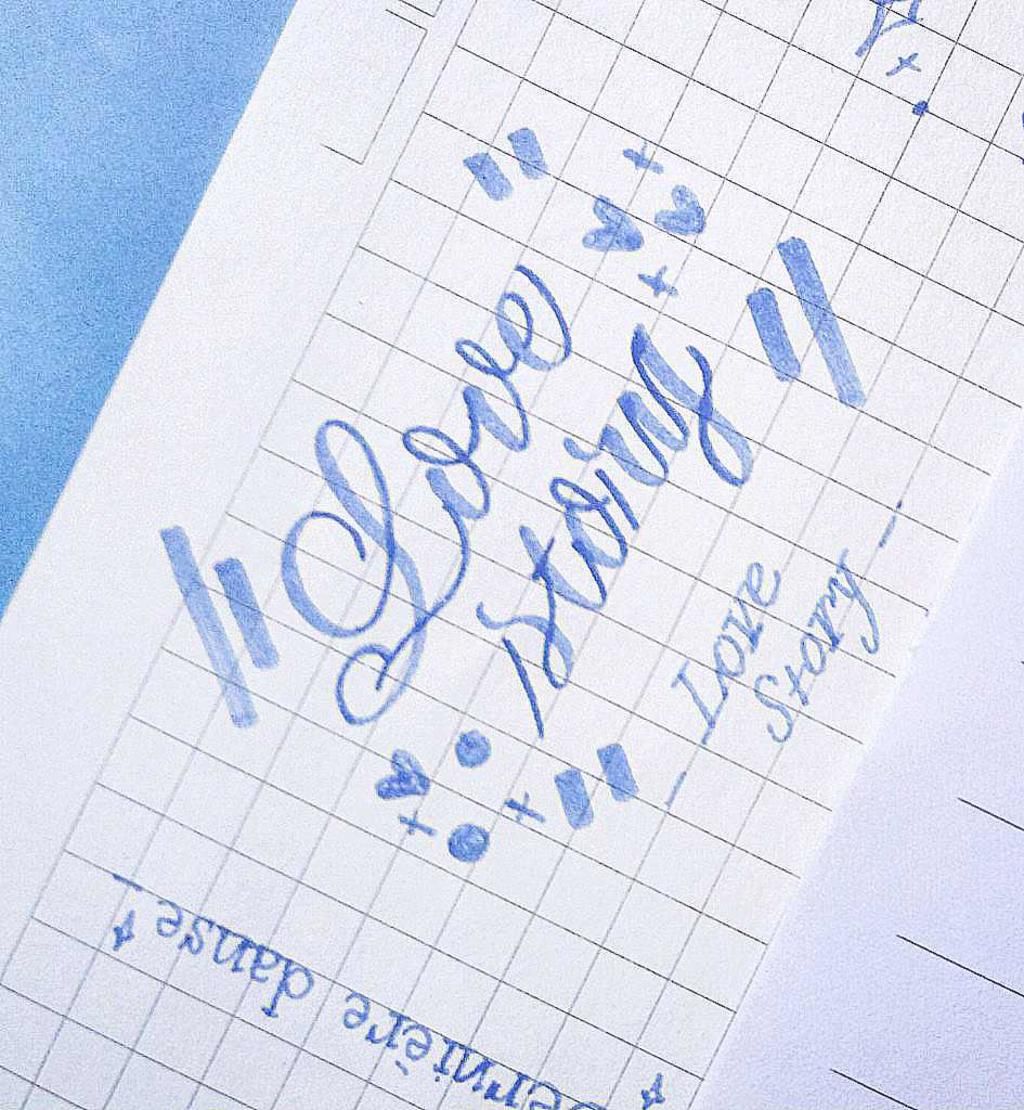 Love
story
- Love
Story -
ernière danse